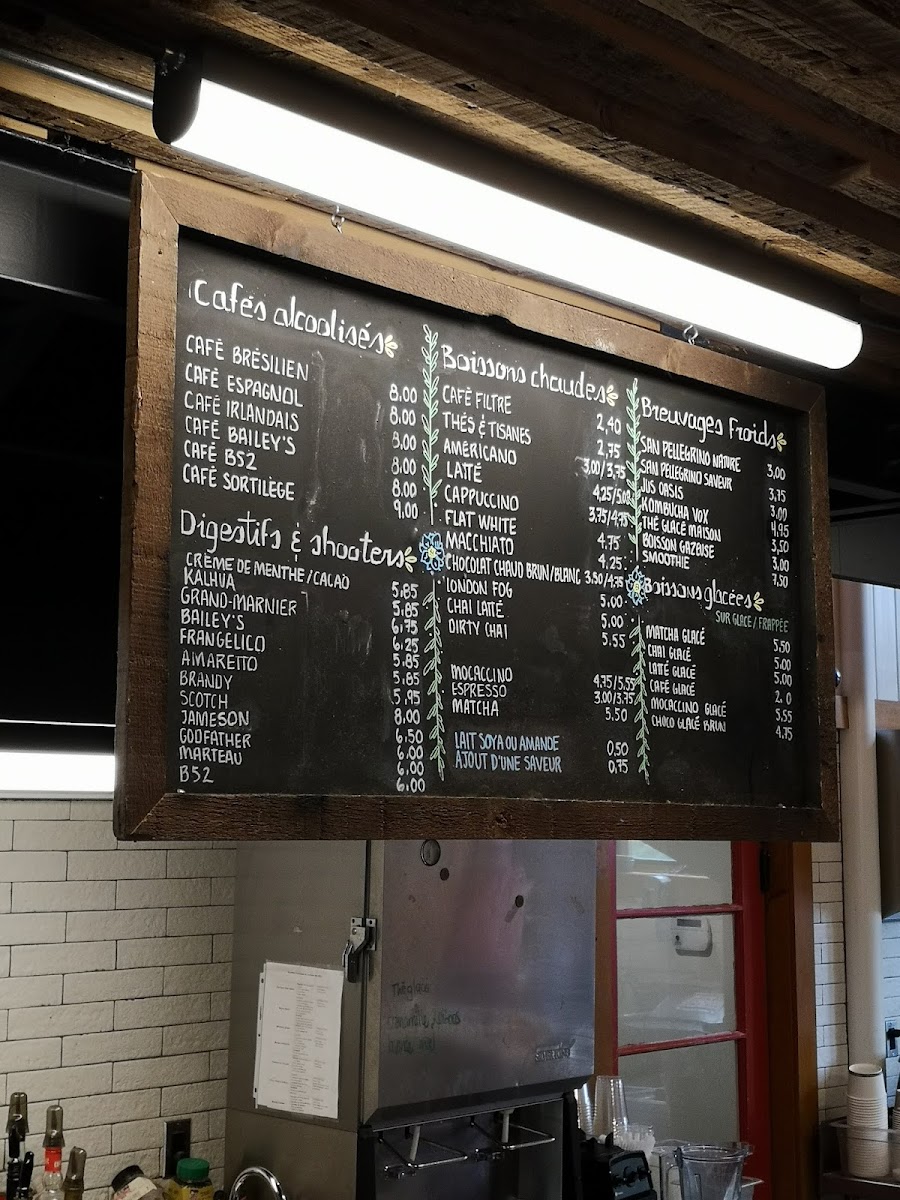 Cafés alcoolisés
CAFÉ BRÉSILIEN 8.00
CAFÉ ESPAGNOL 8.00
CAFÉ IRLANDAIS 8.00
CAFÉ BAILEY'S 8.00
CAFÉ B52 8.00
CAFÉ SORTILÈGE 9.00
Digestifs & shooters
CRÈME DE MENTHE/CACAO 5.85
KALHUA 5.85
GRAND-MARNIER 6.75
BAILEY'S 6.25
FRANGELICO 5.85
AMARETTO 5.85
BRANDY 5,95
SCOTCH 8.00
JAMESON 6.50
GODFATHER 6.00
MARTEAU 6.00
B52 6.00
Boissons chaudes
CAFÉ FILTRE 2,40
THÉS & TISANES 2,75
AMÉRICANO 3,00/3,75
LATTÉ 4,25/5,00
CAPPUCCINO 3,75/4,75
FLAT WHITE 4.75
MACCHIATO 4.25
CHOCOLAT CHAUD BRUN/BLANC 3.50/4.75
LONDON FOG 5.00
CHAI LATTÉ 5.00
DIRTY CHAI 5.55
MOCACCINO 4.75/5.55
ESPRESSO 3.00/3.75
MATCHA 5.50
LAIT SOYA OU AMANDE 0,50
AJOUT D'UNE SAVEUR 0,75
Breuvages froids
SAN PELLEGRINO NATURE 3,00
SAN PELLEGRINO SAVEUR 3,75
JUS OASIS 3,00
KOMBUCHA VOX 4,95
THÉ GLACÉ MAISON 3,50
BOISSON GAZEUSE 3,00
SMOOTHIE 7,50
Boissons glacées
SUR GLACE/FRAPPÉE
MATCHA GLACÉ 5.50
CHAI GLACÉ 5.00
LATTÉ GLACÉ 5.00
CAFÉ GLACÉ 2. 0
MOCACCINO GLACÉ 5.55
CHOCO GLACÉ BRUN 4.75